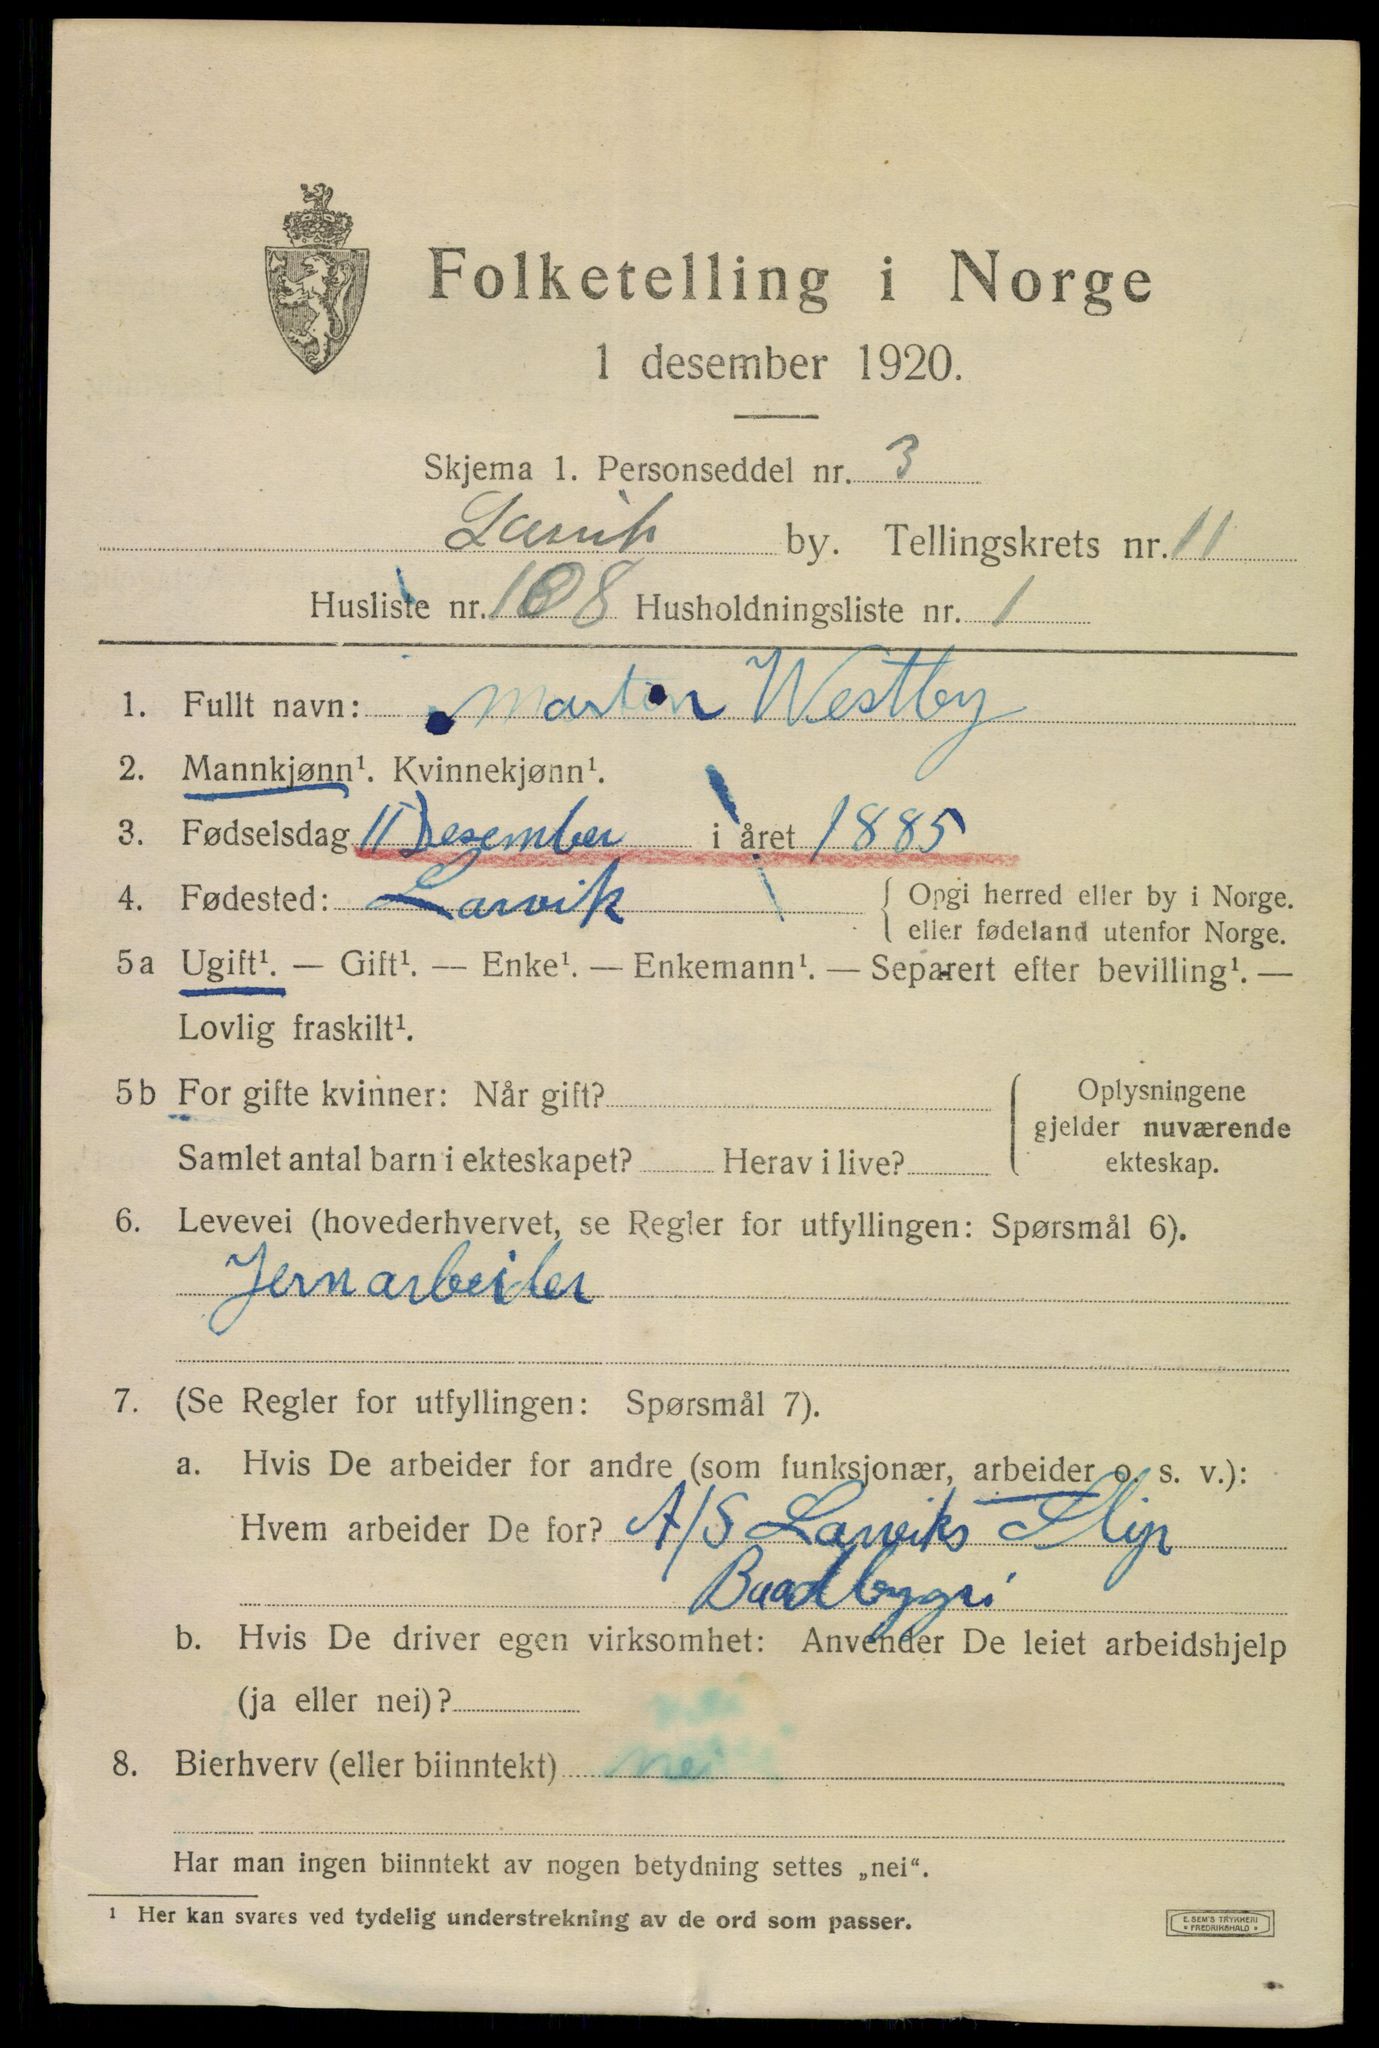 Folketelling i Norge
1 desember 1920.
Skjema 1. Personseddel nr. 3
Larvik by. Tellingskrets nr. 11
Husliste nr. 108 Husholdningsliste nr. 1
1. Fullt navn: Martin Westby
2. Mannkjønn¹. Kvinnekjønn¹.
3. Fødselsdag 11 Desember i året 1885
4. Fødested: Larvik { Opgi herred eller by i Norge.
eller fødeland utenfor Norge.
5a Ugift¹. — Gift¹. — Enke¹. — Enkemann¹. — Separert efter bevilling¹. —
Lovlig fraskilt¹.
5b For gifte kvinner: Når gift?
Samlet antal barn i ekteskapet? Herav i live?
Oplysningene
gjelder nuværende
ekteskap.
6. Levevei (hovederhvervet, se Regler for utfyllingen: Spørsmål 6).
Jernarbeider
7. (Se Regler for utfyllingen: Spørsmål 7).
a. Hvis De arbeider for andre (som funksjonær, arbeider o. s. v.):
Hvem arbeider De for? A/S Larviks Slip
Baadbyggri
b. Hvis De driver egen virksomhet: Anvender De leiet arbeidshjelp
(ja eller nei)? nei
8. Bierhverv (eller biinntekt) nei
Har man ingen biinntekt av nogen betydning settes „nei“.
¹ Her kan svares ved tydelig understrekning av de ord som passer.
E. SEM'S TRYKKERI
* FREDRIKSHALD *